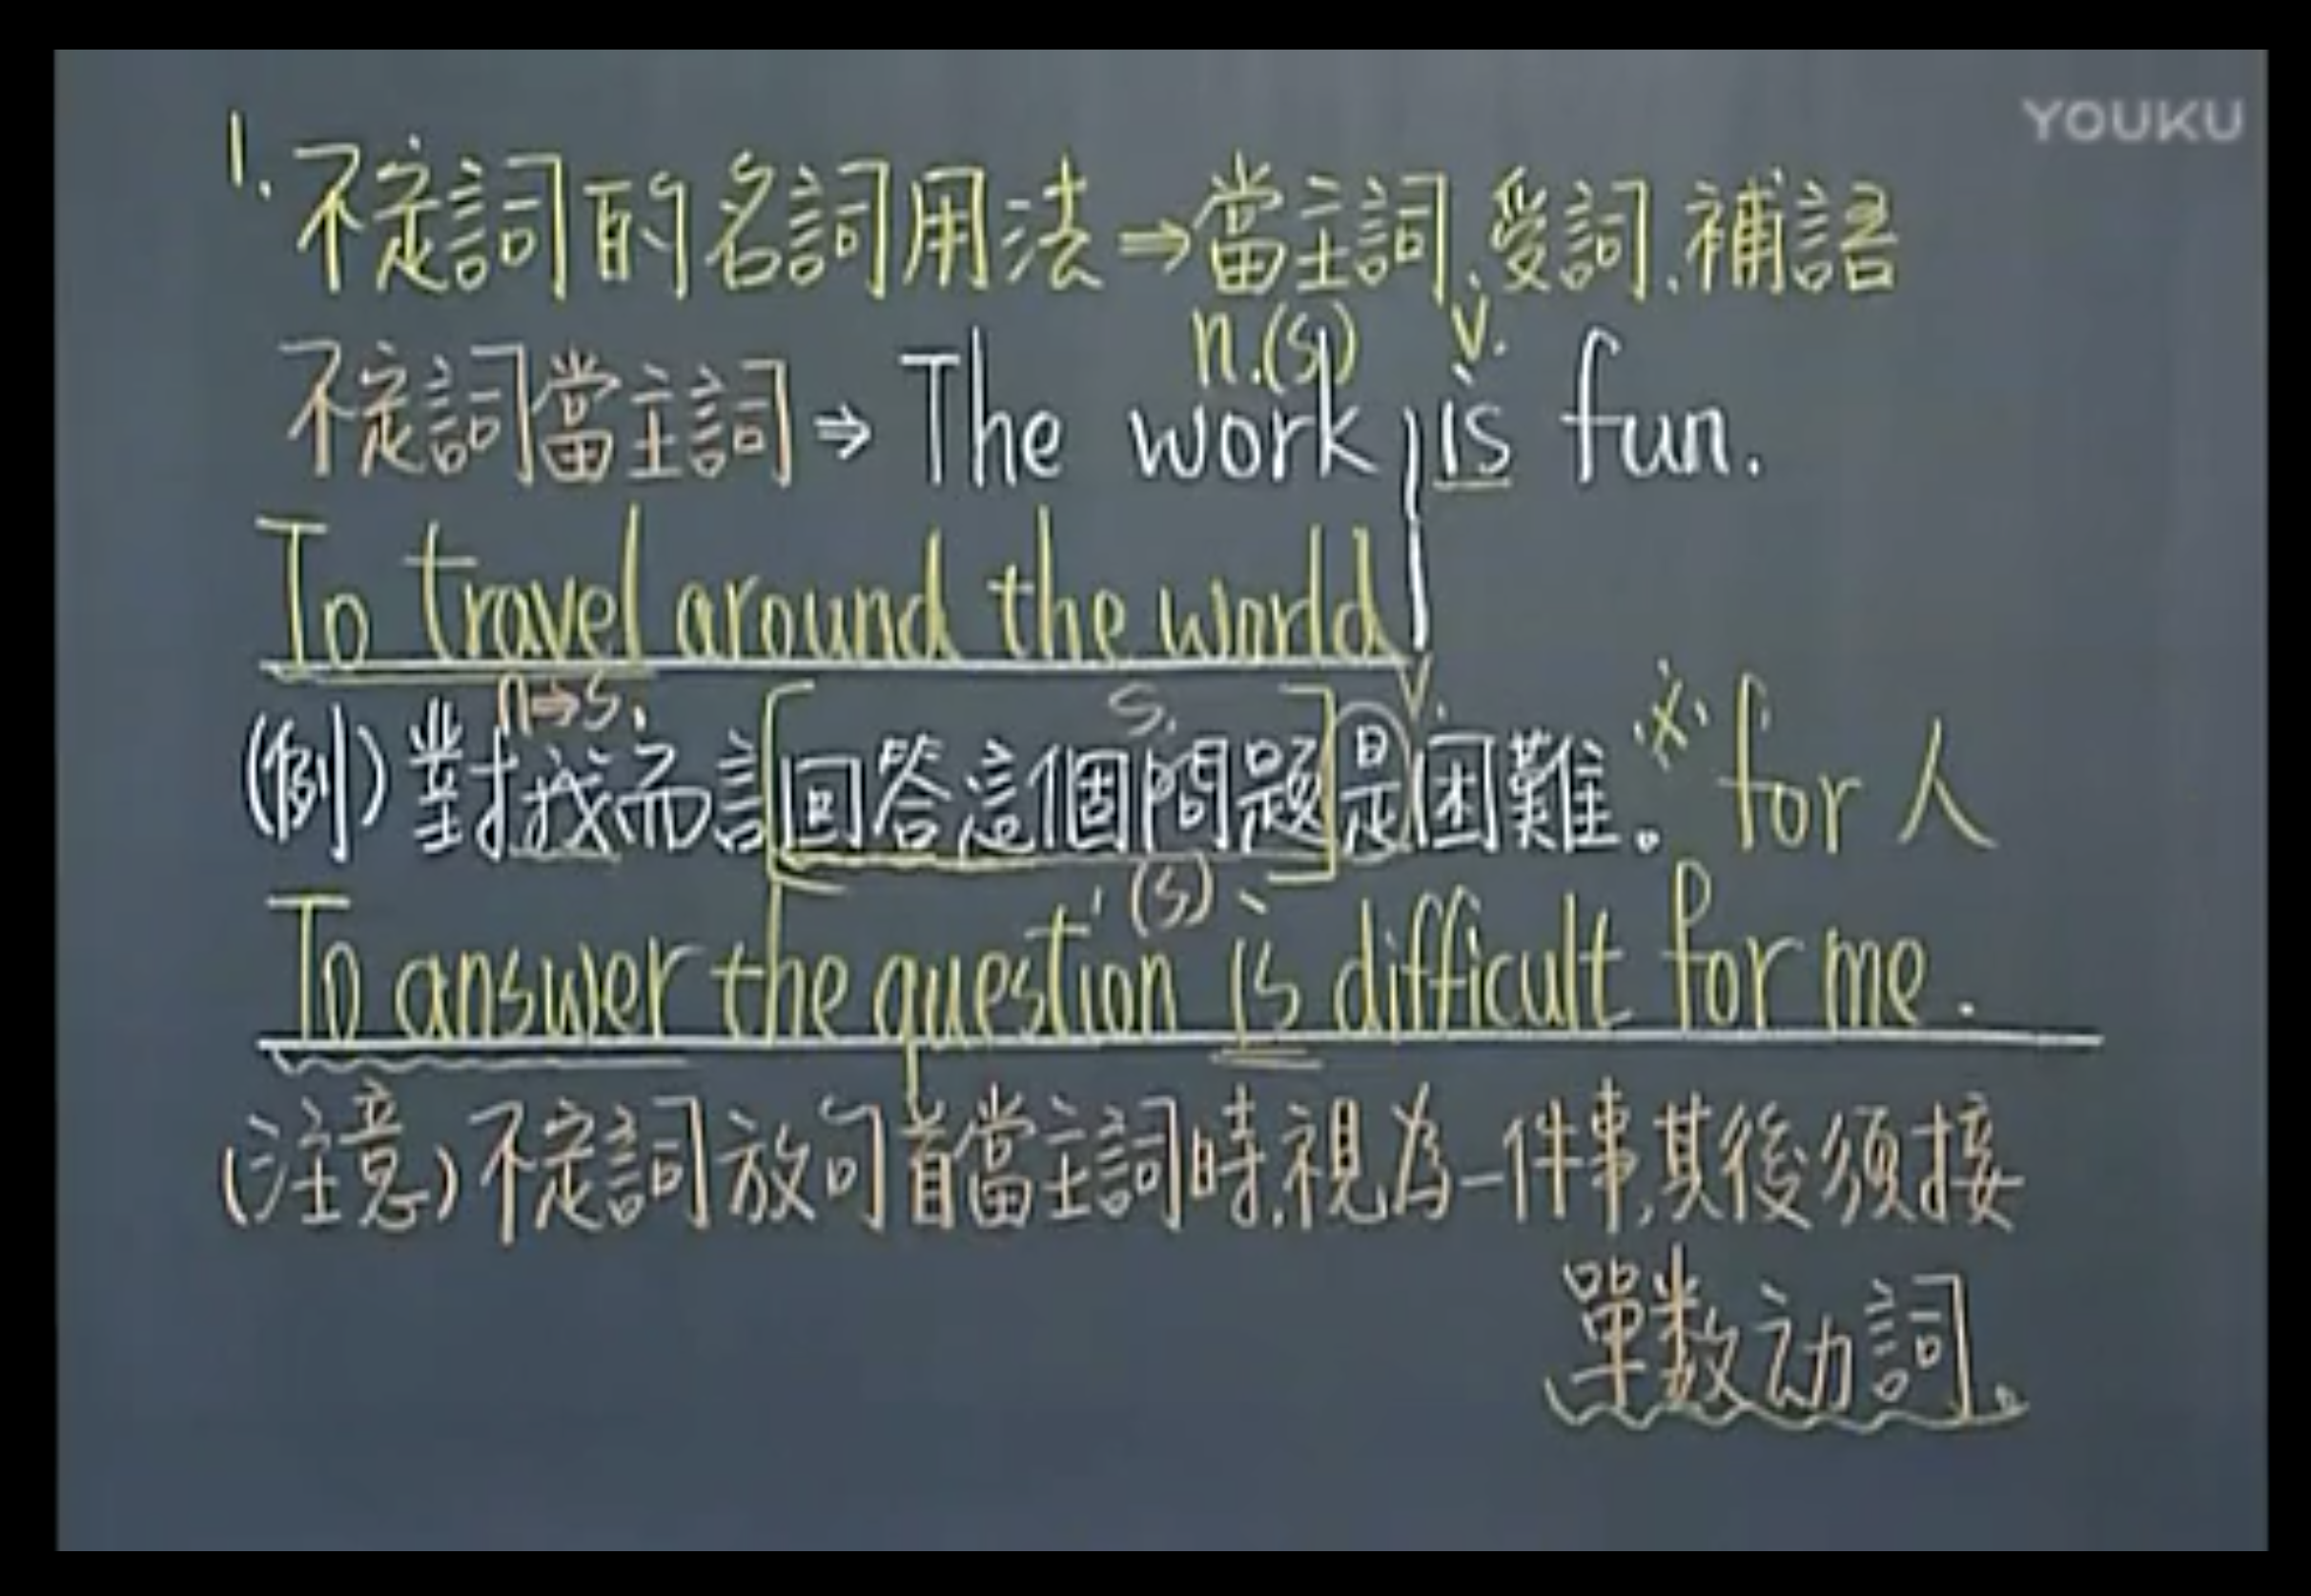 YOUKU
1. 不定詞的名詞用法⇒當主詞、受詞、補語
n.(s) v.
不定詞當主詞⇒The work is fun.
To travel around the world
n⇒s. s. v.
(例)對我而言[回答這個問題]是困難。※for 人
(s)
To answer the question is difficult for me.
(注意)不定詞放句首當主詞時,視為一件事,其後須接
單数动詞。